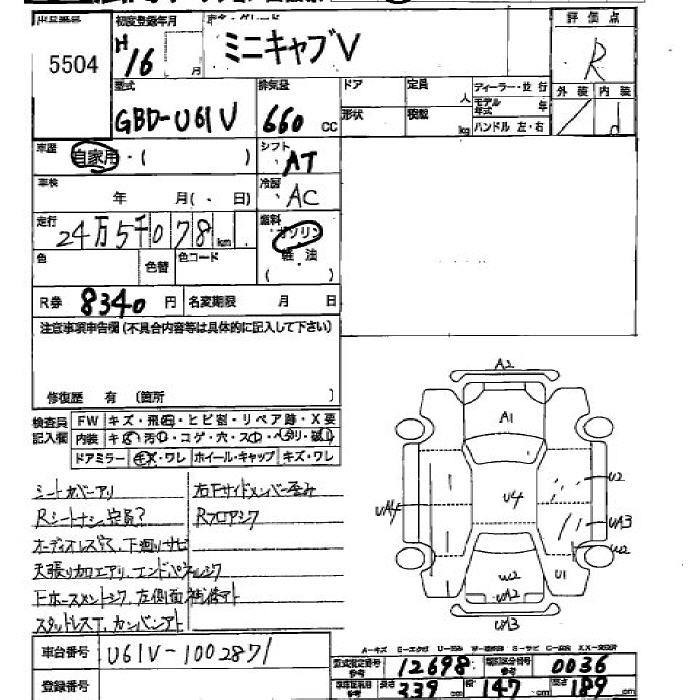 出品番号 初度登録年月 車名・グレード 評価点
5504 H16 月 ミニキャブV R
型式 排気量 ドア 定員 人 ディーラー・並行 外装 内装
GBD-U61V 660 CC 形状 積載 kg モデル年式 年 d
ハンドル 左・右
車歴 自家用・( ) シフト AT
車検 年 月(・日) 冷房 AC
走行 24万5千078km 燃料 ガソリン
色 色替 色コード 軽油
( )
R券 8340円 名変期限 月 日
注意事項申告欄(不具合内容等は具体的に記入して下さい)
修復歴 有 (箇所 )
検査員記入欄 FW キズ・飛石・ヒビ割・リペア跡・X要
内装 キズ・汚れ・コゲ・穴・スレ・ヘタリ・破れ
ドアミラー キズ・ワレ ホイール・キャップ キズ・ワレ
シートカバーアリ 右Fサイドメンバー歪み
Rシートナシ定員? Rフロアシワ
オーディオレス穴、下廻りサビ
天張り加工アリ、エンドパネルシワ
左側面補修アト
スタッドレスT、カンバンアト
A2
A1
U2
UA4
U4
UA3
U2
U1
W2
UA2
UA3
車台番号 U61V-1002871
登録番号
型式指定番号 参考 12698 類別区分番号 参考 0036
長さ 339 cm 幅 147 cm 高さ 189 cm